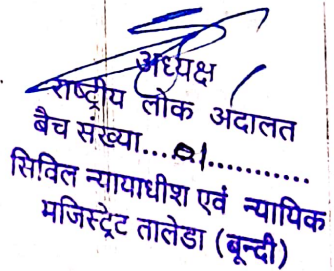 अध्यक्ष
राष्ट्रीय लोक अदालत
बैच संख्या....01............
सिविल न्यायाधीश एवं न्यायिक
मजिस्ट्रेट तालेडा (बून्दी)